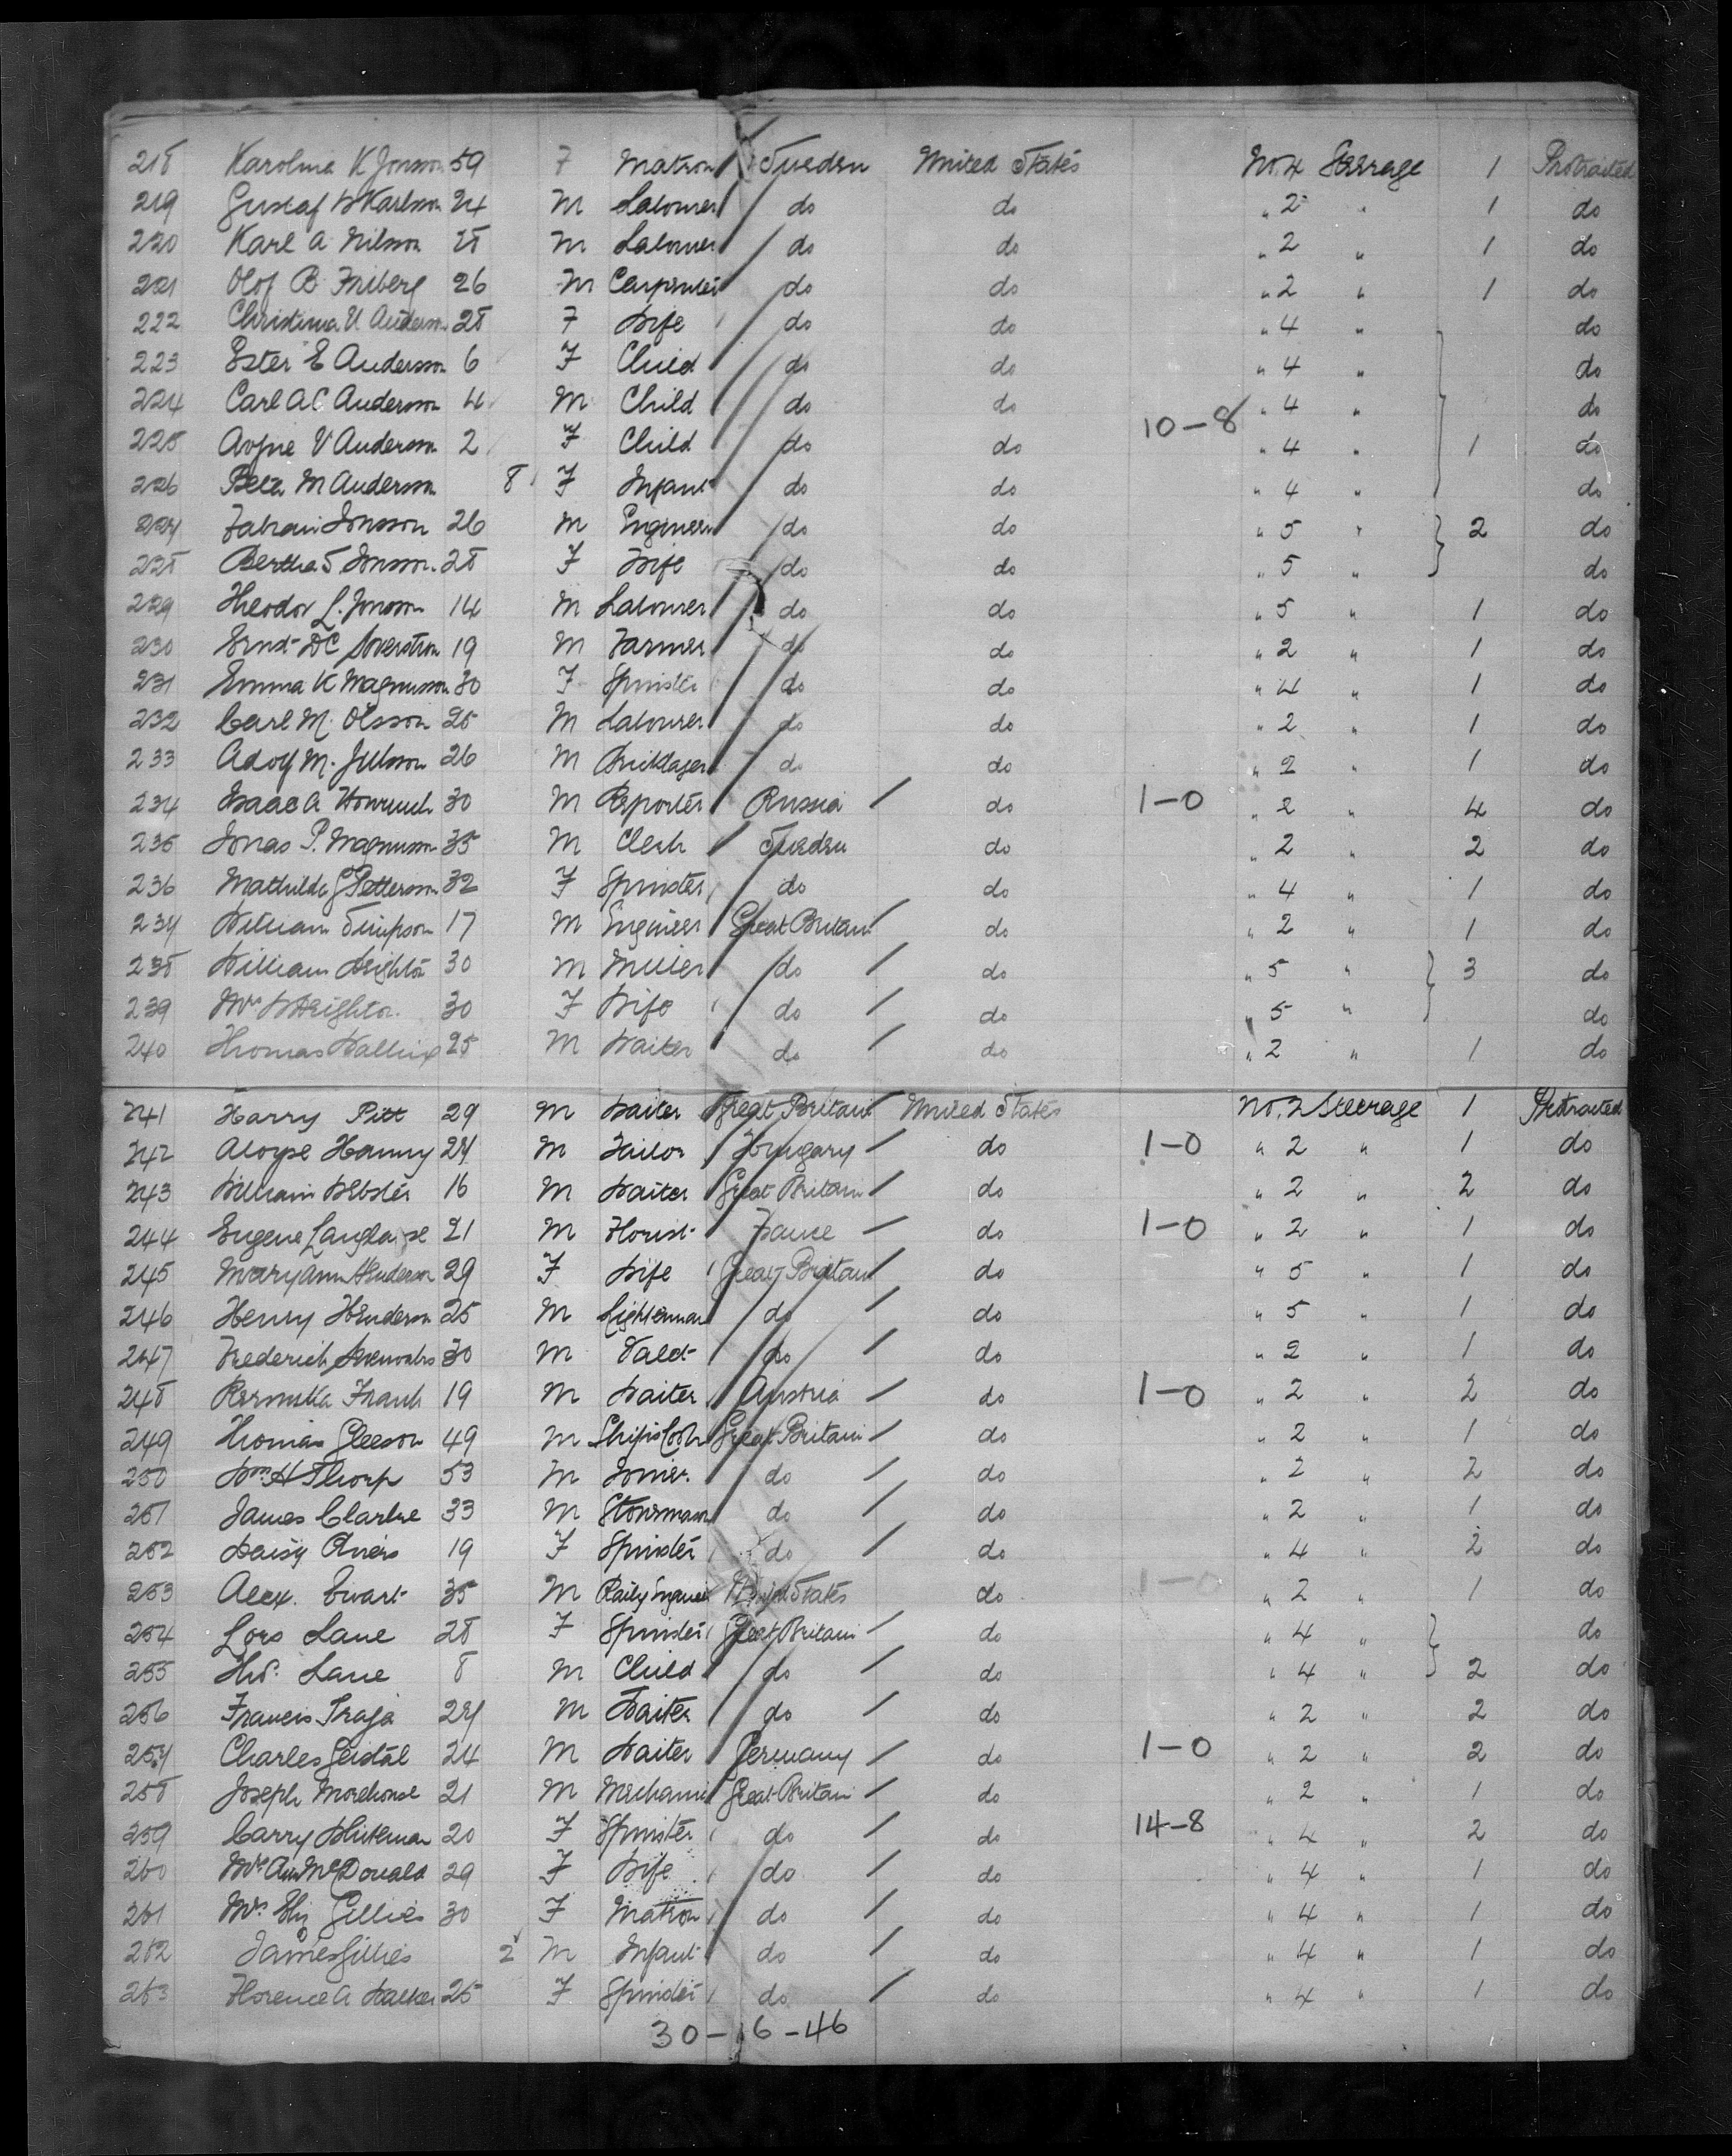 218 Karolina K Jonsson 59 F Matron Sweden United States No. 4 Steerage 1 Protracted
219 Gustaf W Karlsson 24 M Labourer do do " 2 " 1 do
220 Karl A Nilsson 28 M Labourer do do " 2 " 1 do
221 Olof B Friberg 26 M Carpenter do do " 2 " 1 do
222 Christina U Anderson 28 F Wife do do " 4 " do
223 Ester E Andersson 6 F Child do do " 4 " do
224 Carl A C Anderson 4 M Child do do " 4 " do
10-8
225 V Anderson 2 F Child do do " 4 " 1 do
226 M Anderson 8 F Infant do do " 4 " do
227 Jonsson 26 M Engineer do do " 5 " 2 do
228 Bertha S Jonsson 28 F Wife do do " 5 " do
229 Theodor L. Jonsson 14 M Labourer do do " 5 " 1 do
230 Ernst DC 19 M Farmer do do " 2 " 1 do
231 Emma K Magnusson 30 F Spinster do do " 4 " 1 do
232 Carl M. Olsson 25 M Labourer do do " 2 " 1 do
233 Adolf M. 26 M Bricklayer do do " 2 " 1 do
234 Isaac A 30 M Reporter Russia do 1-0 " 2 " 4 do
235 Jonas P. Magnusson 35 M Clerk Sweden do " 2 " 2 do
236 Mathilda G Petterson 32 F Spinster do do " 4 " 1 do
237 William Simpson 17 M Engineer Great Britain do " 2 " 1 do
238 William Weighton 30 M Miller do do " 5 " 3 do
239 Mrs Weighton 30 F Wife do do " 5 " do
240 Thomas Walling 25 M Waiter do do " 2 " 1 do
241 Harry Pitt 29 M Waiter Great Britain United States No. 2 Steerage 1 Protracted
242 Aloyse Hanny 27 M Tailor Hungary do 1-0 " 2 " 1 do
243 William Webster 16 M Waiter Great Britain do " 2 " 2 do
244 Eugene Langlaise 21 M Florist France do 1-0 " 2 " 1 do
245 Mary Ann Henderson 29 F Wife Great Britain do " 5 " 1 do
246 Henry Henderson 25 M Lighterman do do " 5 " 1 do
247 Frederick 30 M Valet do do " 2 " 1 do
248 Frank 19 M Waiter Austria do 1-0 " 2 " 2 do
249 Thomas Gleeson 49 M Ship's Cook Great Britain do " 2 " 1 do
250 Wm H Thorp 53 M Joiner do do " 2 " 2 do
251 James Clarke 33 M Stonemason do do " 2 " 1 do
252 Daisy Rivers 19 F Spinster do do " 4 " 2 do
253 Alex. Ewart 35 M Raily Engineer United States do 1-0 " 2 " 1 do
254 Lane 28 F Spinster Great Britain do " 4 " do
255 Lane 8 M Child do do " 4 " 2 do
256 Francis 27 M Waiter do do " 2 " 2 do
257 Charles Geidal 24 M Waiter Germany do 1-0 " 2 " 2 do
258 Joseph Morehouse 21 M Mechanic Great Britain do " 2 " 1 do
259 Carry Whiteman 20 F Spinster do do 14-8 " 4 " 2 do
260 Mrs Ann McDonald 29 F Wife do do " 4 " 1 do
261 Mrs Gillies 30 F Matron do do " 4 " 1 do
262 James Gillies 2 M Infant do do " 4 " 1 do
263 Florence A Walker 25 F Spinster do do " 4 " 1 do
30-16-46